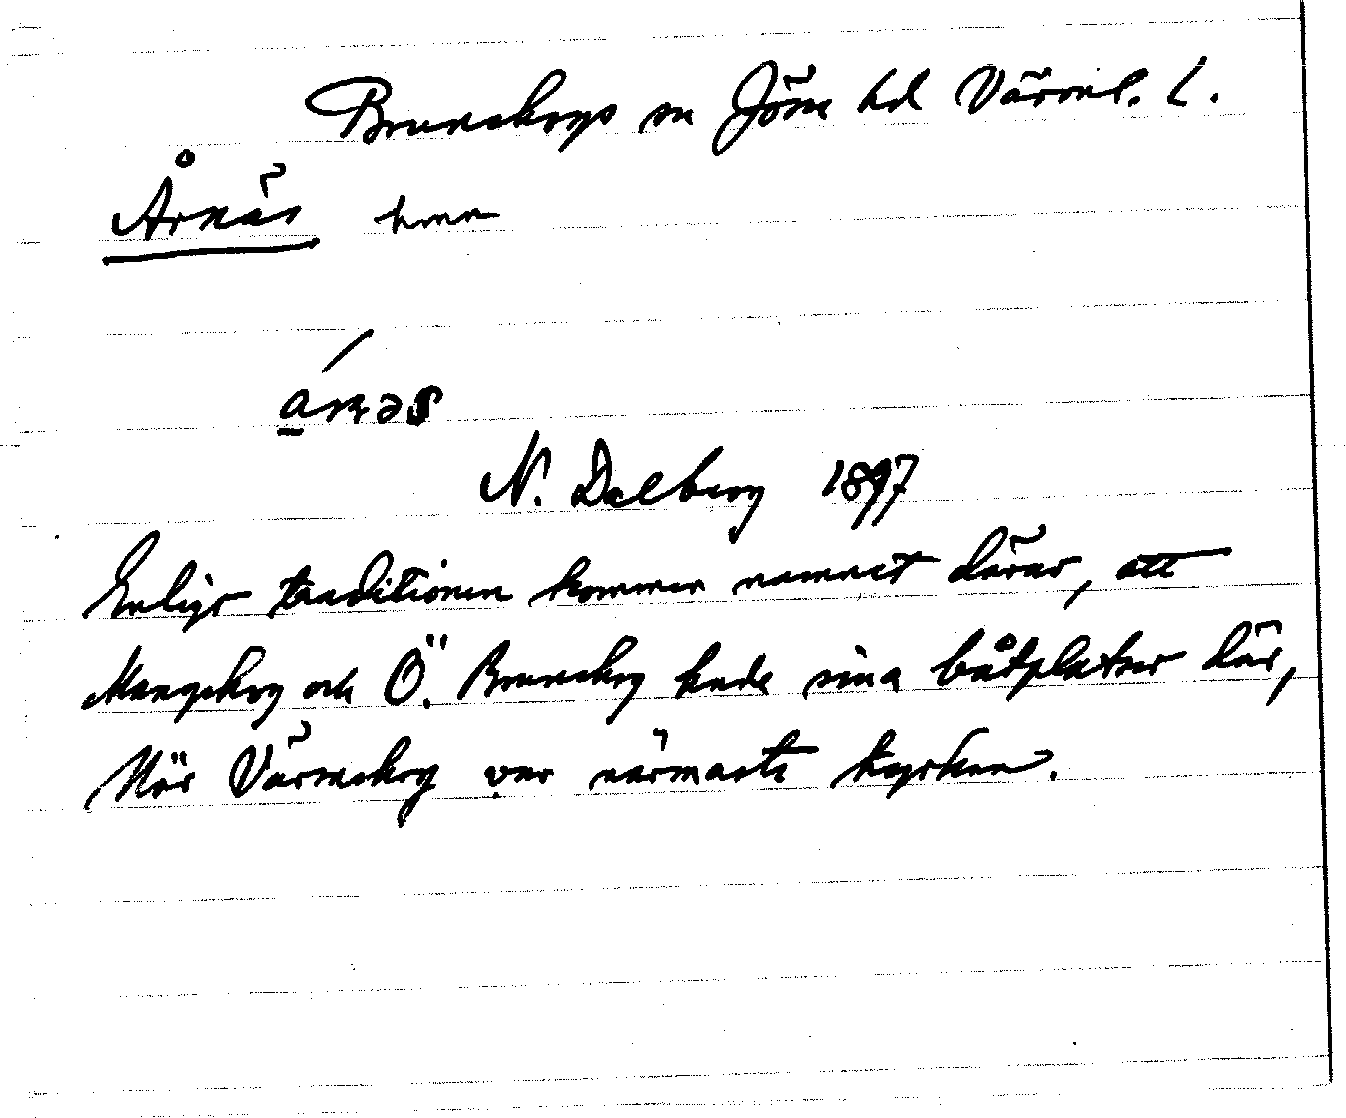 Brunskogs sn Jösse hd Värml. L.
Årnäs hmn
N. Dalberg 1897
Enligt traditionen kommer namnet därav, att
Mangskog och Ö. Brunskog hade sina båtplatser där,
När Värmskog var närmaste kyrkan.